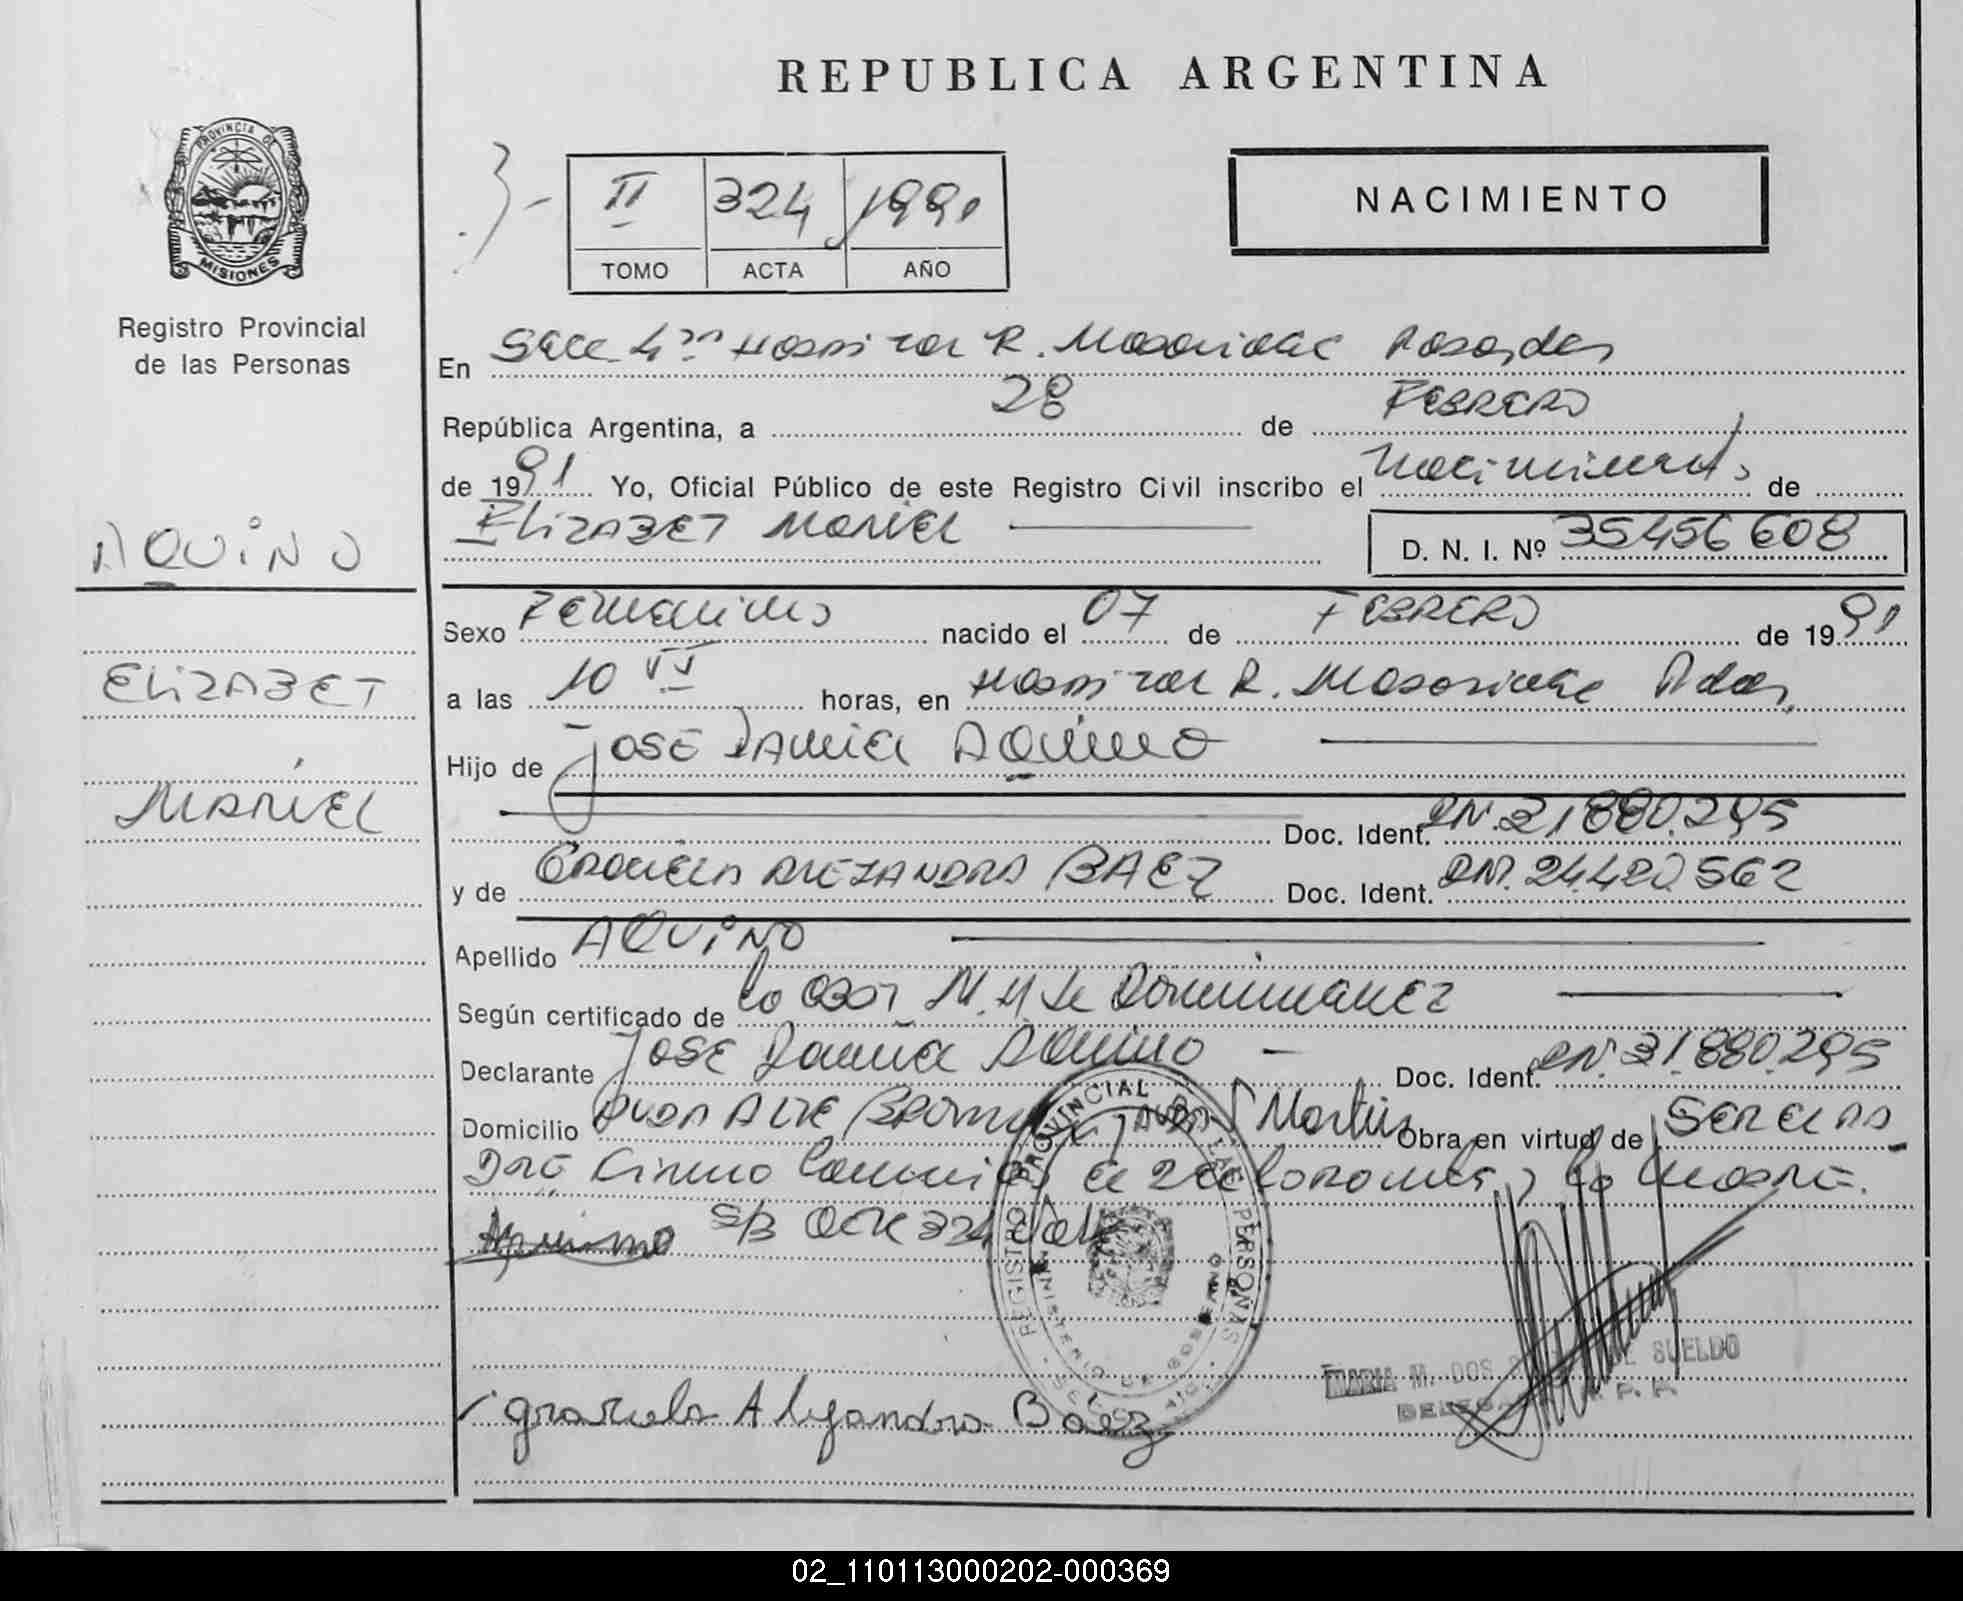 REPUBLICA ARGENTINA
PROVINCIA DE
MISIONES
Registro Provincial
de las Personas
II 324 1991
TOMO ACTA AÑO
NACIMIENTO
En Secc 4ta Hospital R. Madariaga Posadas
República Argentina, a 28 de FEBRERO
de 1991 Yo, Oficial Público de este Registro Civil inscribo el Nacimiento de
ELIZABET MARIEL
D. N. I. Nº 35456608
AQUINO
ELIZABET
MARIEL
Sexo Femenino nacido el 07 de FEBRERO de 1991
a las 10 horas, en Hospital R. Madariaga Pdas,
Hijo de JOSE DANIEL AQUINO
Doc. Ident. DNI. 21.880.295
y de GRACIELA ALEJANDRA BAEZ Doc. Ident. DNI. 24.420.562
Apellido AQUINO
Según certificado de la Obst N. M. de
Declarante JOSE Daniel Aquino — Doc. Ident. DNI. 21.880.295
Domicilio Alte Brown Martin Obra en virtud de SER el PA
DRE Firman el declarante y la MADRE.
S/B
REGISTRO PROVINCIAL DE LAS PERSONAS
MINISTERIO DE GOBIERNO
MARIA M. DOS DE SUELDO
Graciela Alejandra Báez
02_110113000202-000369